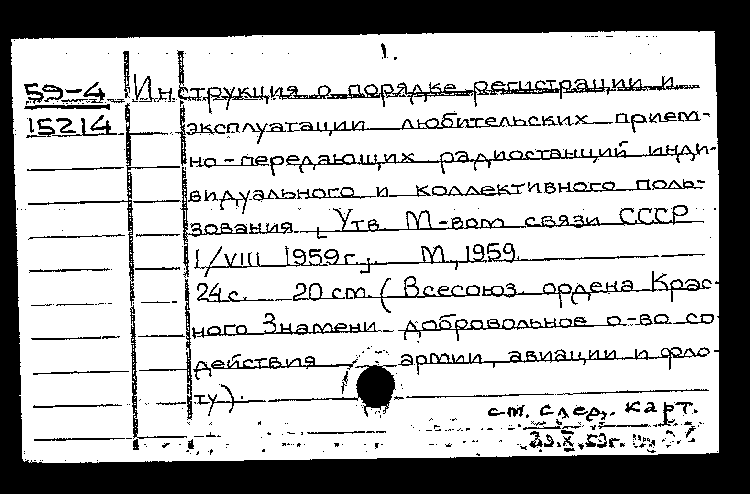 1.
59-4 Инструкция о порядке регистрации и
15214 эксплуатации любительских прием-
но-передающих радиостанций инди-
видуального и коллективного поль-
зования [Утв. М-вом связи СССР
1/VIII 1959 г.]. М., 1959.
24 с. 20 cm. (Всесоюз. ордена Крас-
ного Знамени добровольное о-во со
действия армии, авиации и фло-
ту).
см. след. карт.
X.59г.